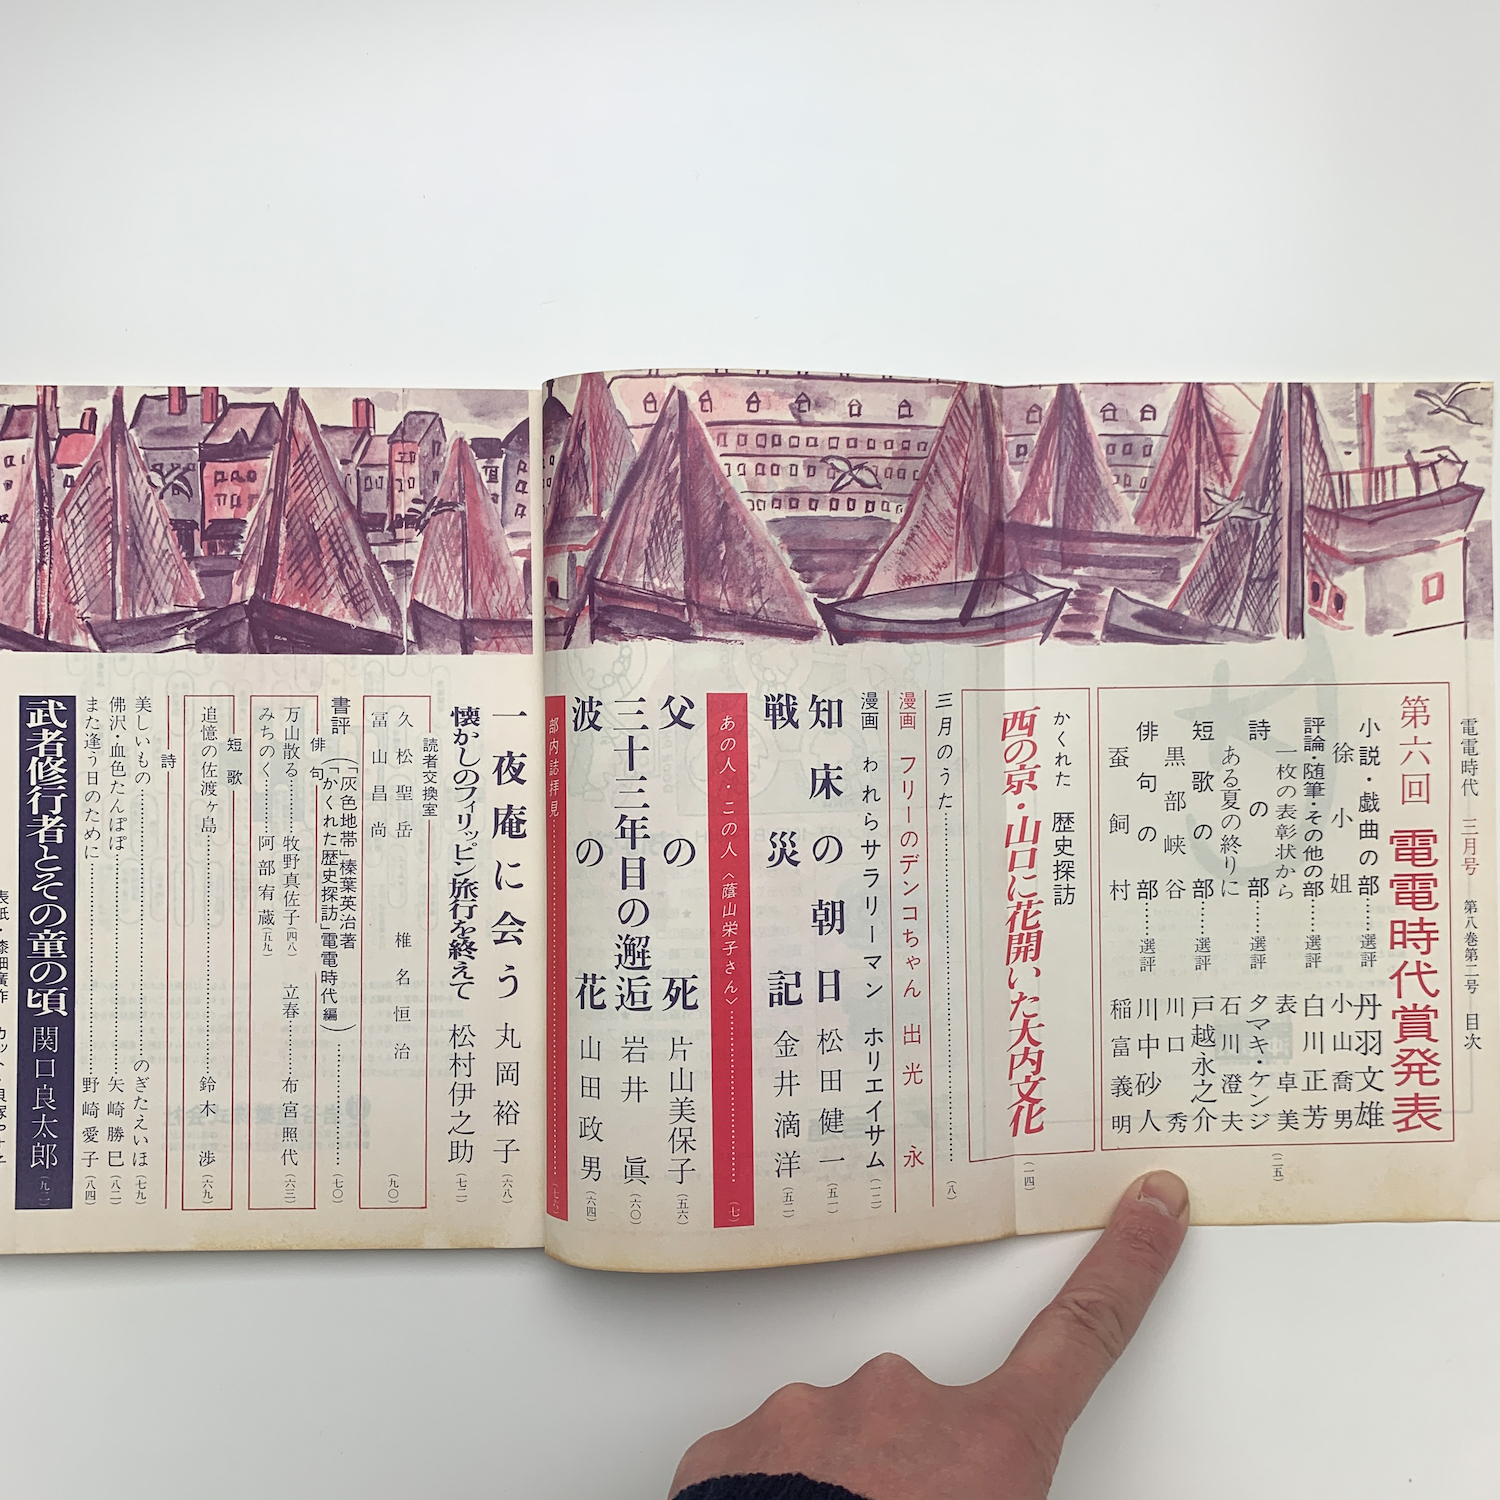 電電時代　三月号　第八巻第二号　目次
第六回　電電時代賞発表
小説・戯曲の部……選評　丹羽文雄
徐小姐　小山喬男
評論・随筆・その他の部……選評　白川正芳
一枚の表彰状から　表卓美
詩の部……選評　タマキ・ケンジ
ある夏の終りに　石川澄夫
短歌の部……選評　戸越永之介
黒部峡谷　川口秀
俳句の部……選評　川中砂人
蚕飼村　稲富義明
（二五）
かくれた歴史探訪
西の京・山口に花開いた大内文化
（一四）
三月のうた……（八）
漫画　フリーのデンコちゃん　出光永
漫画　われらサラリーマン　ホリエイサム（一二）
知床の朝日　松田健一（五一）
戦災記　金井滴洋（五二）
あの人・この人〈蔭山栄子さん〉……（七）
父の死　片山美保子（五六）
三十三年目の邂逅　岩井眞（六〇）
波の花　山田政男（六四）
部内誌拝見……（七六）
一夜庵に会う　丸岡裕子（六八）
懐かしのフィリッピン旅行を終えて　松村伊之助（七二）
読者交換室
久松聖岳　椎名恒治
冨山昌尚
（九〇）
書評（「灰色地帯」榛葉英治著
「かくれた歴史探訪」電電時代編）……（七〇）
俳句
万山散る……牧野真佐子（四八）　立春……布宮照代（六三）
みちのく……阿部宥蔵（五九）
短歌
追憶の佐渡ヶ島……鈴木渉（六九）
詩
美しいもの……のぎたえいほ（七九）
佛沢・血色たんぽぽ……矢崎勝巳（八二）
また逢う日のために……野崎愛子（八四）
武者修行者とその童の頃　関口良太郎（九二）